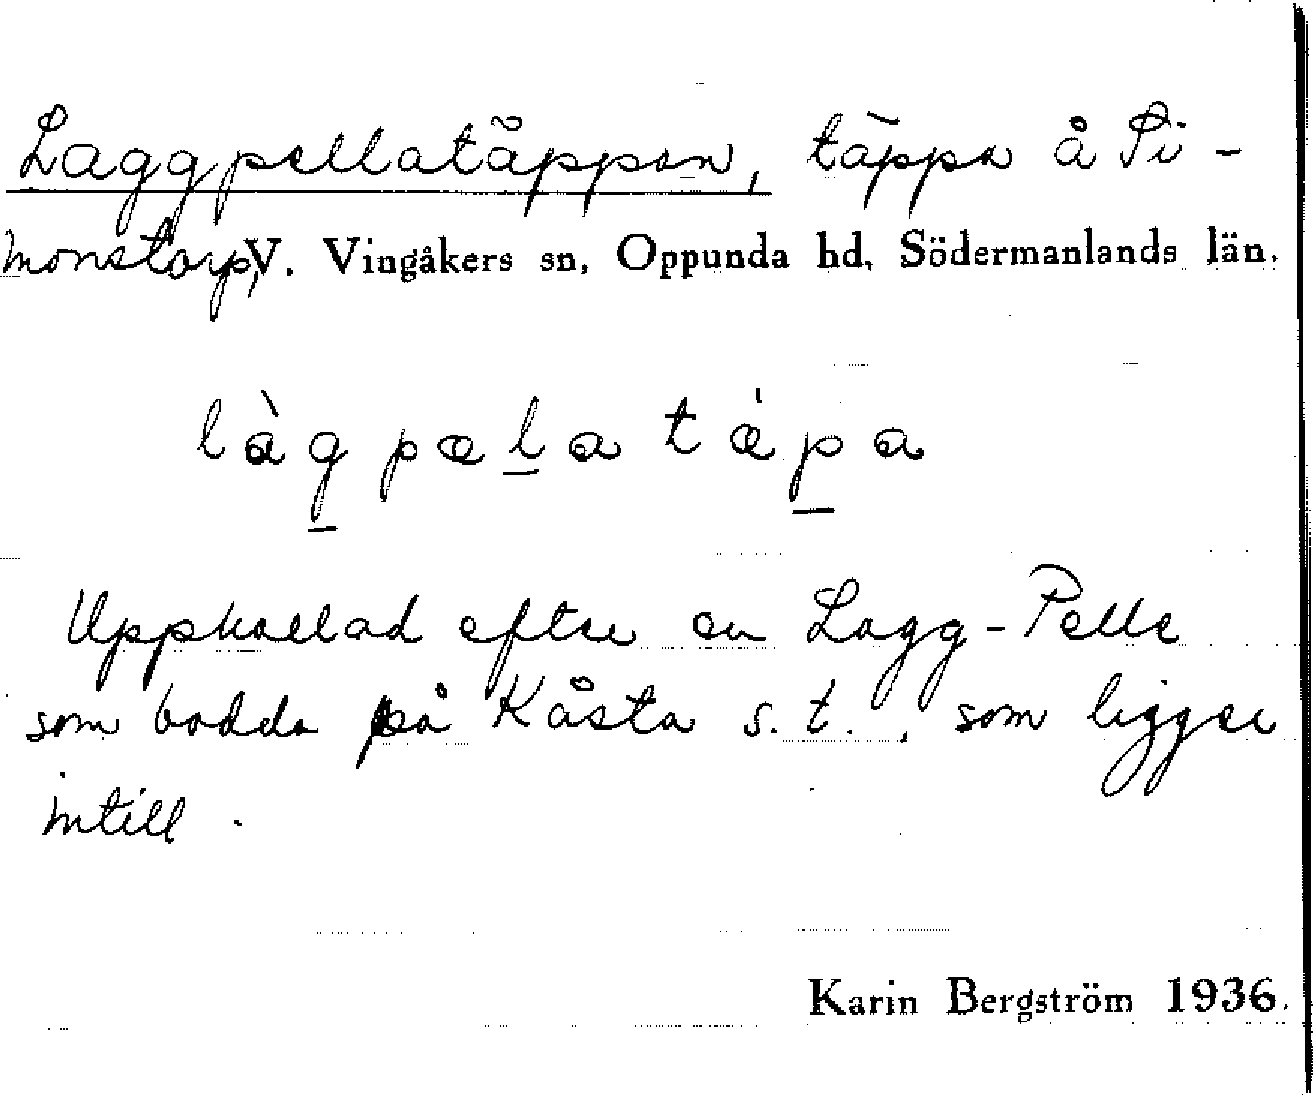 Laggpellatäppan, täppa å Si-
monstorp, V. Vingåkers sn, Oppunda hd, Södermanlands län.
làgpælatǽpa
Uppkallad efter en Lagg-Pelle
som bodde på Kåsta s.t., som ligger
intill.
Karin Bergström 1936.